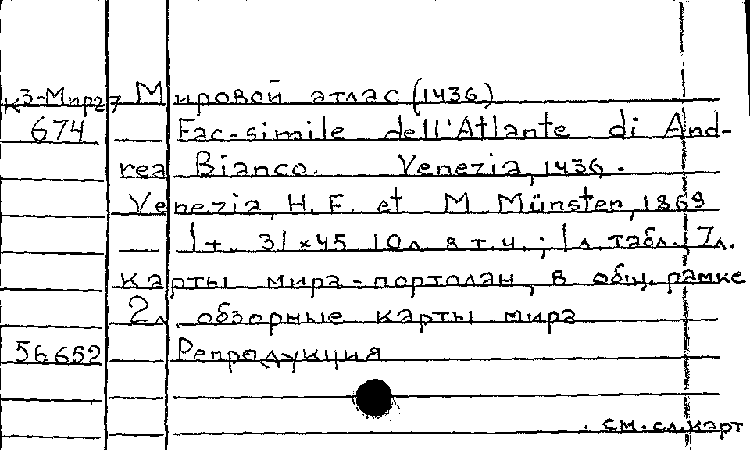 к3-Мир27 Мировой атлас (1436)
674 Fac-simile dell'Atlante di And-
rea Bianco. Venezia, 1436.
Venezia, H. F. et M Münster, 1869
1 т. 31×45 10л. в т.ч.; 1 л. табл. 7л.
карты мира-портолан, в общ. рамке
2л обзорные карты мира
56652 Репродукция
см. сл. карт